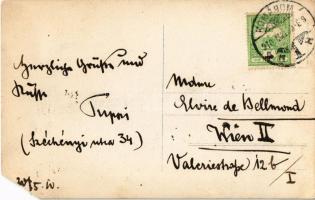 Herzliche Grüße und
Küsse
(Széchényi utca 34)
Mdme
Elvire de Bellmond
Wien II
Valeriestraße 12b/I